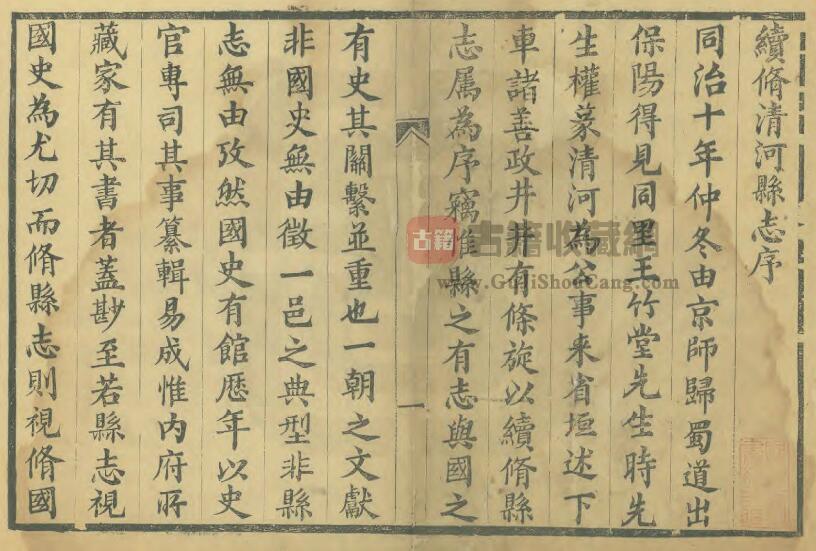 續脩清河縣志序
同治十年仲冬由京師歸蜀道出
保陽得見同里王竹堂先生時先
生權篆清河為公事来省垣述下
車諸善政井井有條旋以續脩縣
志属為序竊惟縣之有志與國之
一
有史其關繫並重也一朝之文獻
非國史無由徵一邑之典型非縣
志無由攷然國史有館歷年以史
官專司其事纂輯易成惟內府所
藏家有其書者蓋尠至若縣志視
國史為尤切而脩縣志則視脩國
古籍
古籍收藏網
www.GuJiShouCang.com